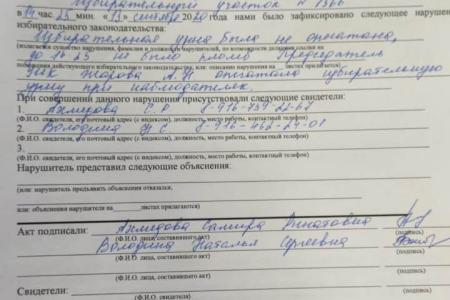 Избирательный участок №
в 14 час. 25 мин. « 13 » сентября 2020 года нами было зафиксировано следующее нарушен
избирательного законодательства:
Избирательная урна была не опечатана,
(излагается существо нарушения, фамилии и должности нарушителей, по возможности делается ссылка на
до 14 25 не было пломб Председатель
положения действующего избирательного законодательства, или: описание нарушения на листах прилагается)
УИК Жарова А.Н опечатала избирательную
урну при наблюдателях.
При совершении данного нарушения присутствовали следующие свидетели:
1. Ахмедова С.Р. 8-916-739-22-67
(Ф.И.О. свидетеля, его почтовый адрес (с индексом), должность, место работы, контактный телефон)
2. Володина Н С 8-916-462-24-01
(Ф.И.О. свидетеля, его почтовый адрес (с индексом), должность, место работы, контактный телефон)
3.
(Ф.И.О. свидетеля, его почтовый адрес (с индексом), должность, место работы, контактный телефон)
Нарушитель представил следующие объяснения:
(или: нарушитель предъявить объяснения отказался,
или: объяснения нарушителя на листах прилагаются)
Акт подписали: Ахмедова Самира Ринатовна
(Ф.И.О. лица, составившего акт) (подпись)
Володина Наталья Сергеевна
(Ф.И.О. лица, составившего акт) (подпись)
(Ф.И.О. лица, составившего акт) (подпись)
Свидетели: (подпись)